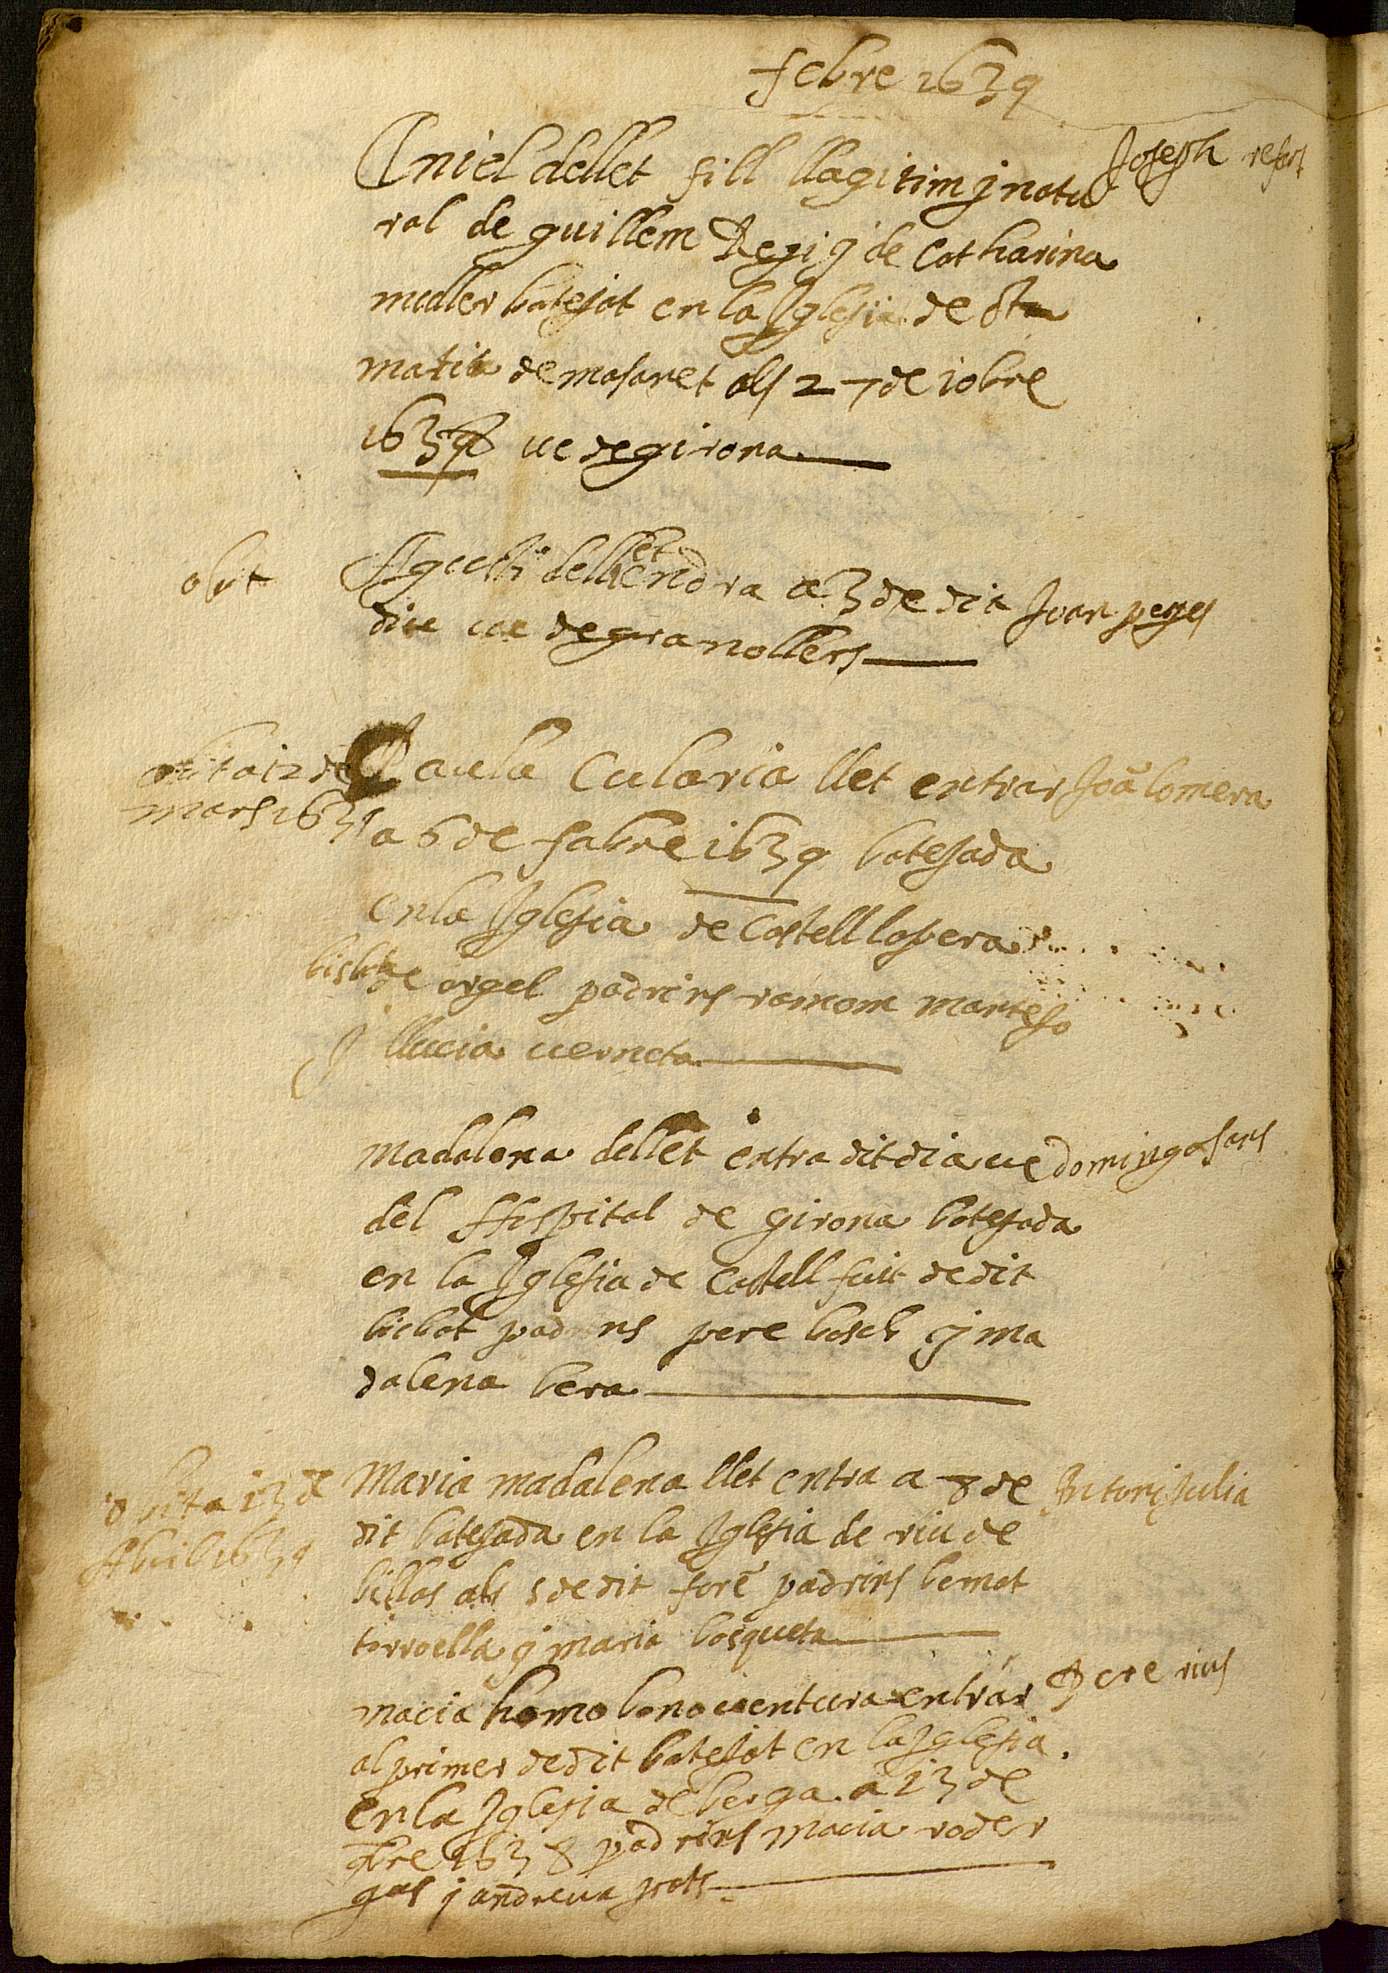 febre 1639
Aniel dellet fill llagitim y natu
Joseph
ral de guillem Regi y de Catharina
muller batejat en la Iglesia de St
matia de masanet als 27 de 10bre
1638 ve de girona
obit
dellet entra a 3 de dit
Juan pejes
dia ve de granollers
obita 12 de
mars 1639
Paula Eularia llet entrar
Joã lomera
a 6 de fabre 1639 batejada
en la Iglesia de Castell lospera
bisbat de orgel padrins ramom
y llucia verneta
Madalena dellet entra dit dia ve
domingo sans
del Hospital de girona batejada
en la Iglesia de Castell fuit de dit
bisbat padrins pere bosch y ma
dalena bera
obita 13 de
Abril 1639
Maria madalena llet entra a 8 de
Antoni Julia
dit batejada en la Iglesia de riu de
billas als 5 de dit forẽ padrins bernat
torroella y maria bosqueta
macia homobono ventura entrar
Pere rius
al primer de dit batejat en la Iglesia
en la Iglesia de berga a 13 de
9bre 1638 padrins macia roder
gas y andreua prats